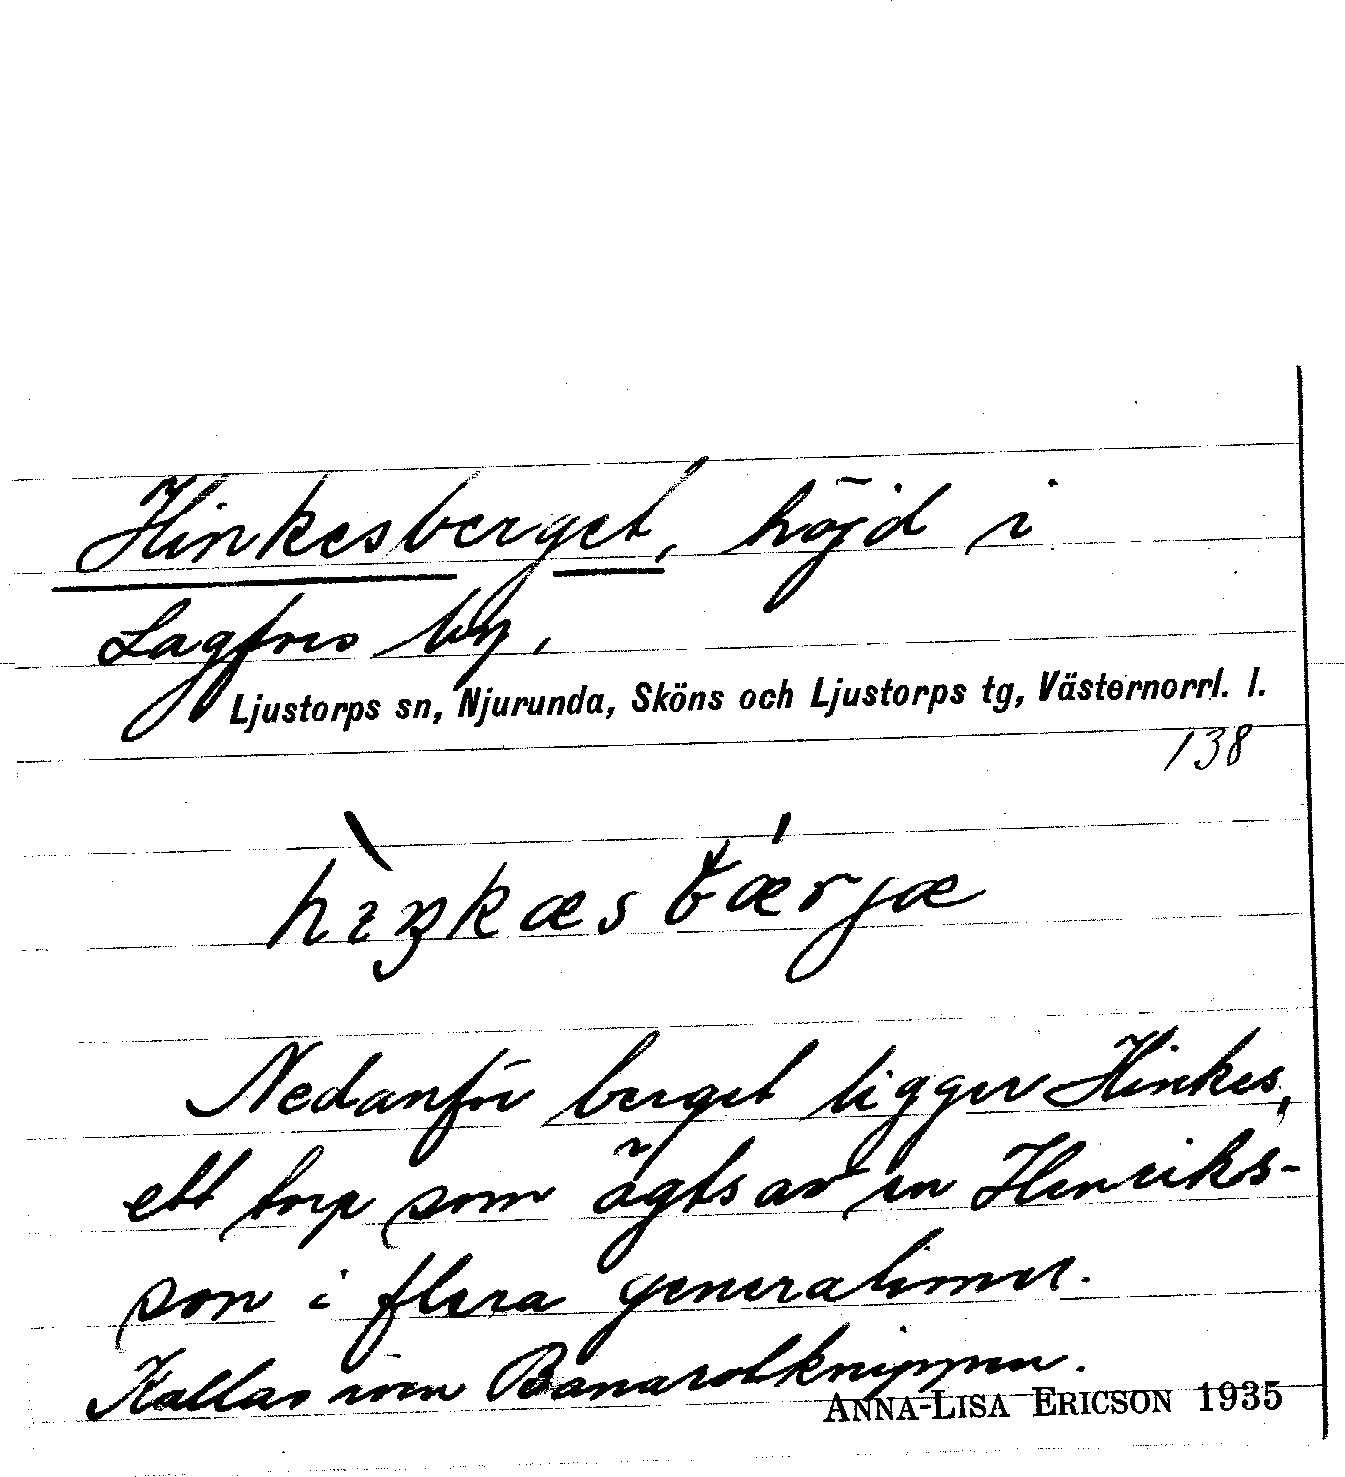 Hinkesberget, höjd i
Lagfors by.
Ljustorps sn, Njurunda, Sköns och Ljustorps tg, Västernorrl. l.
138
hìŋkæsbǽrjæ
Nedanför berget ligger Hinkes,
ett torp som ägts av en Henriks-
son i flera generationer.
Kallas även
ANNA-LISA ERICSON 1935